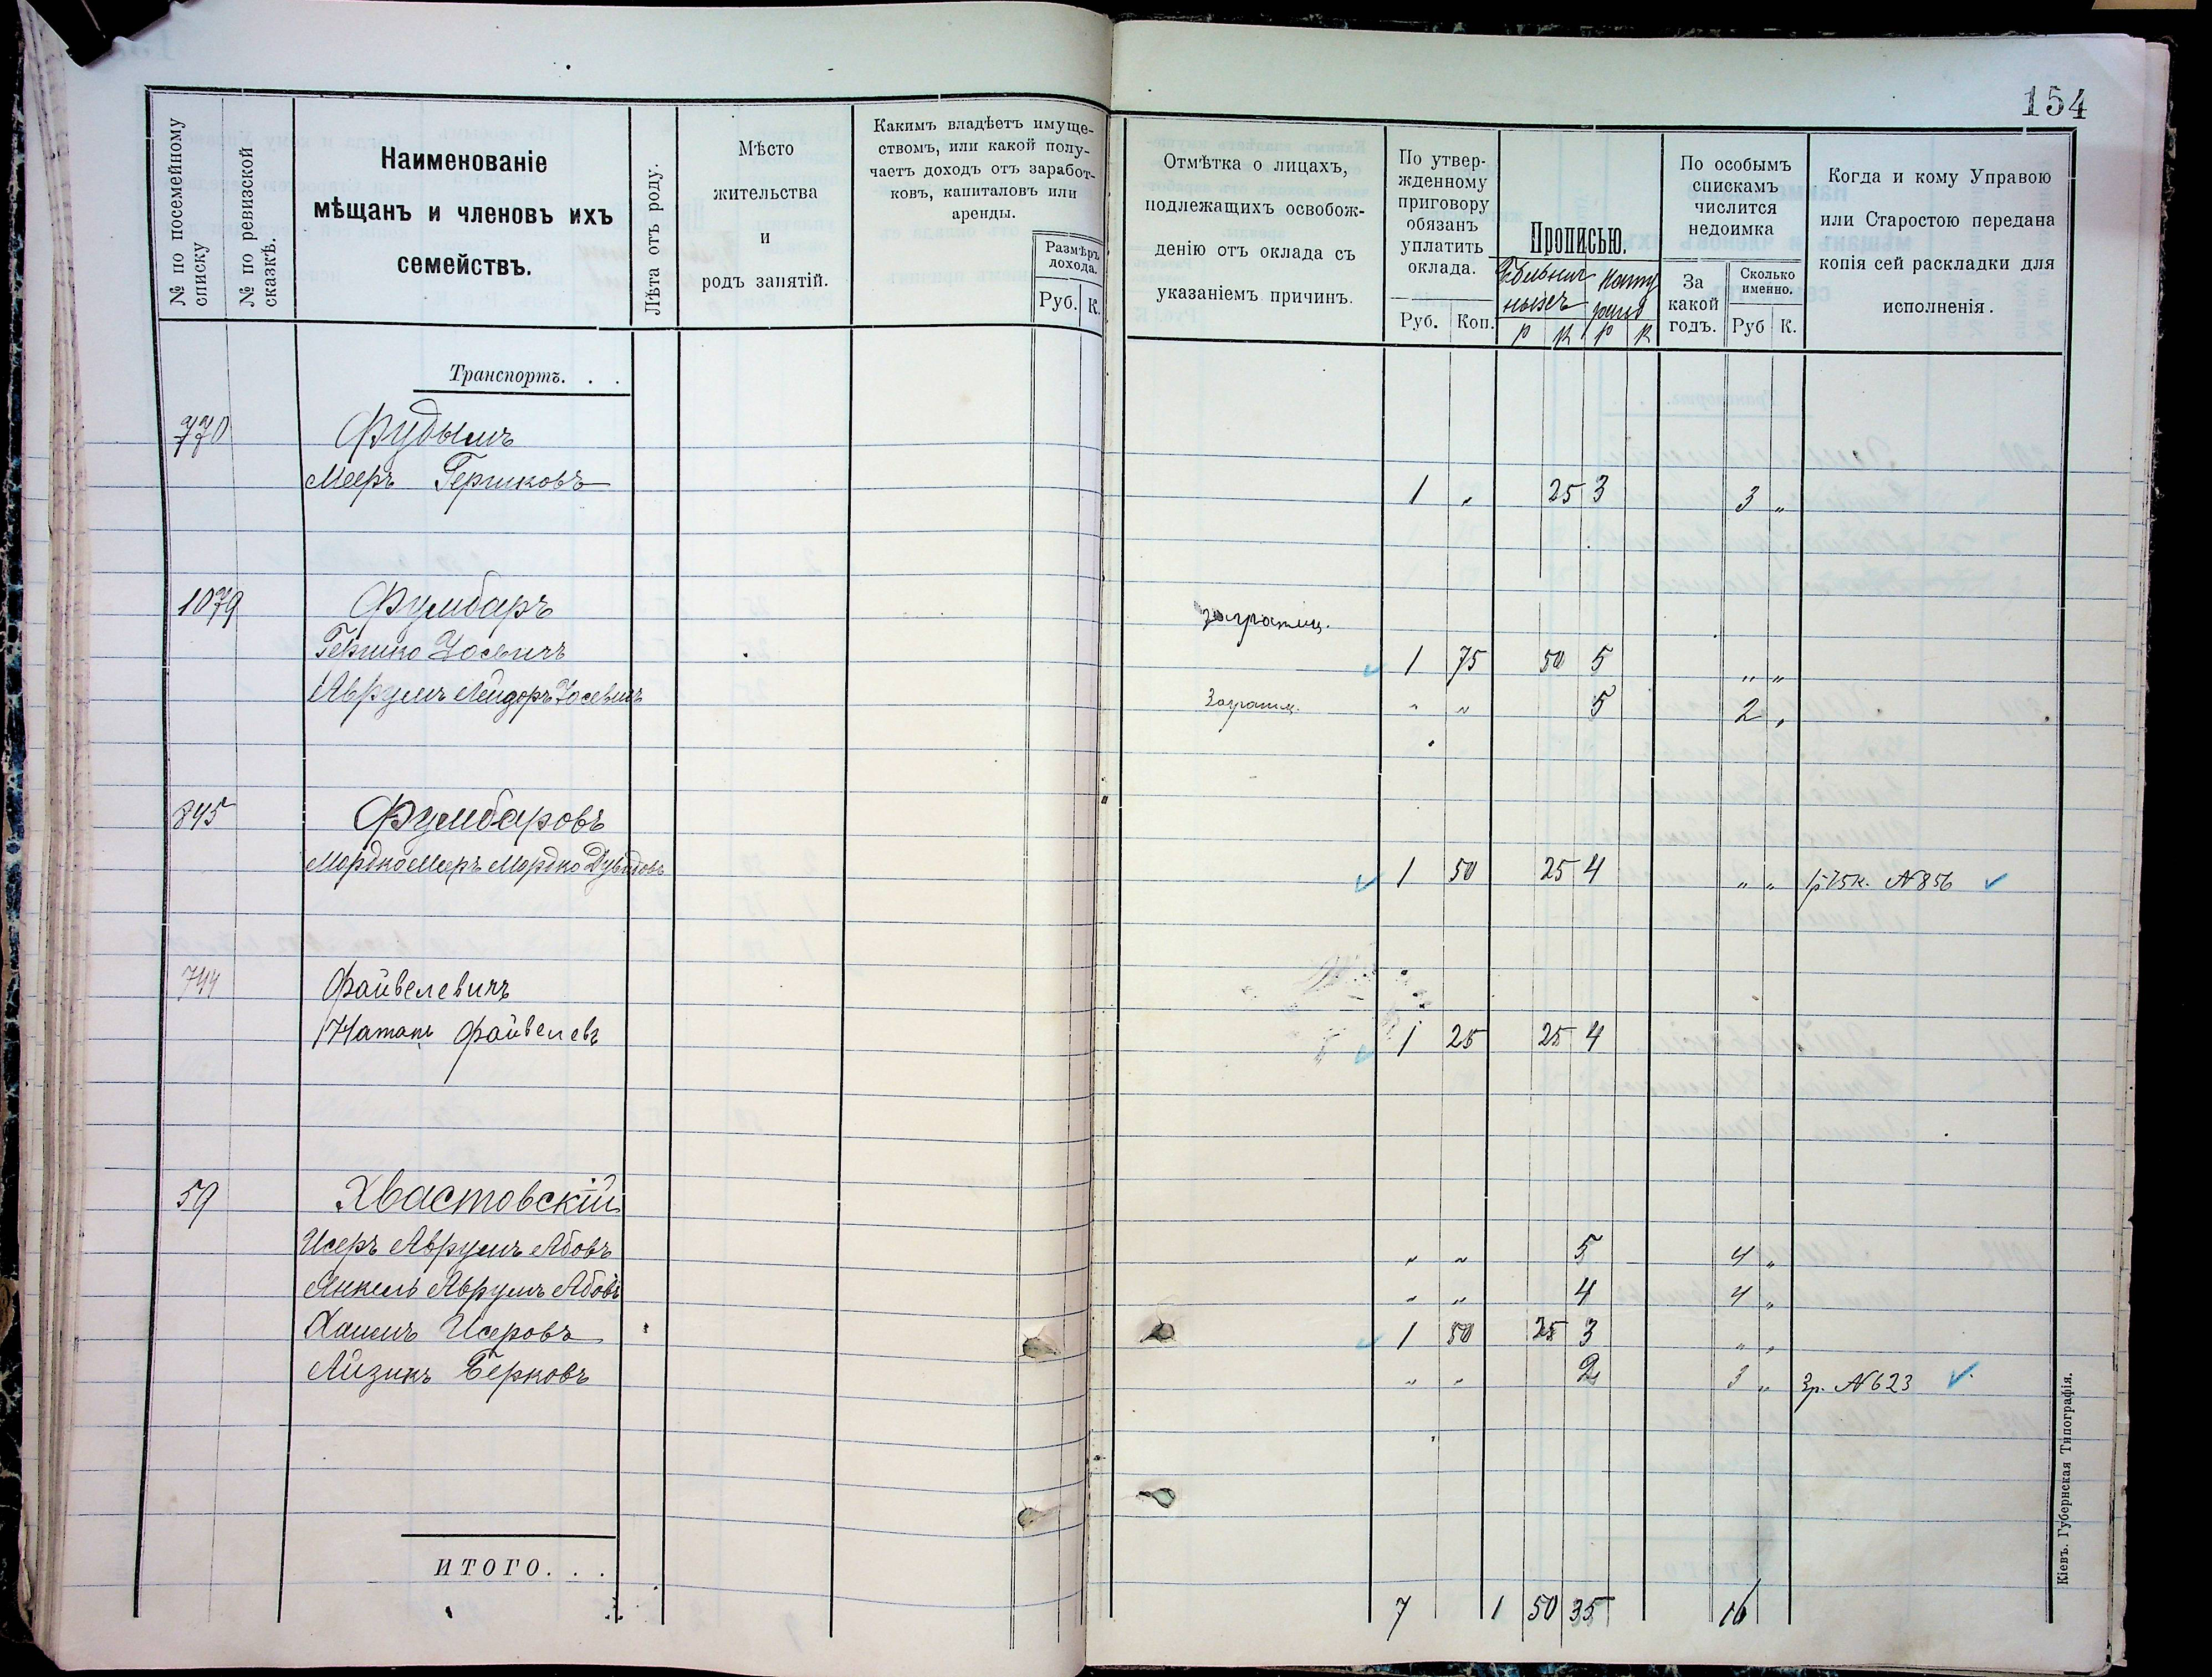 154
№ по посемейному списку
№ по ревизской сказкѣ.
Наименованіе
мѣщанъ и членовъ ихъ
семействъ.
Лѣта отъ роду.
Мѣсто
жительства
и
родъ занятій.
Какимъ владѣетъ имуще-
ствомъ, или какой полу-
чаетъ доходъ отъ заработ-
ковъ, капиталовъ или
аренды.
Размѣръ
дохода.
Руб. К.
Отмѣтка о лицахъ,
подлежащихъ освобож-
денію отъ оклада съ
указаніемъ причинъ.
По утвер-
жденному
приговору
обязанъ
уплатить
оклада.
Руб. Коп.
Прописью.
р к р к
По особымъ
спискамъ
числится
недоимка
За
какой
годъ.
Сколько
именно.
Руб К.
Когда и кому Управою
или Старостою передана
копія сей раскладки для
исполненія.
Транспортъ. . .
770 Фудымъ
Мееръ Гершковъ 1 „ 25 3 3 „
1079 Фумбаръ заграниц.
Гершко Іосевичъ 1 75 50 5 „ „
Аврумъ Лейдоръ Іосевичъ Заграниц. „ „ 5 2 „
845 Фумбаровъ
Мордко Мееръ Мордко Дувидовъ 1 50 25 4 „ „ 1р75к. №856
744 Файвелевичъ
Натанъ Файвелевъ 1 25 25 4
59 Хвастовскій
Исеръ Аврумъ Абовъ „ „ 5 4 „
Янкель Аврумъ Абовъ „ „ 4 4 „
Хаимъ Исеровъ 1 50 25 3 „ „
Айзикъ Берковъ „ „ 2 3 „ 3р. №623
ИТОГО. . .
7 1 50 35 16
Кіевъ. Губернская Типографія.